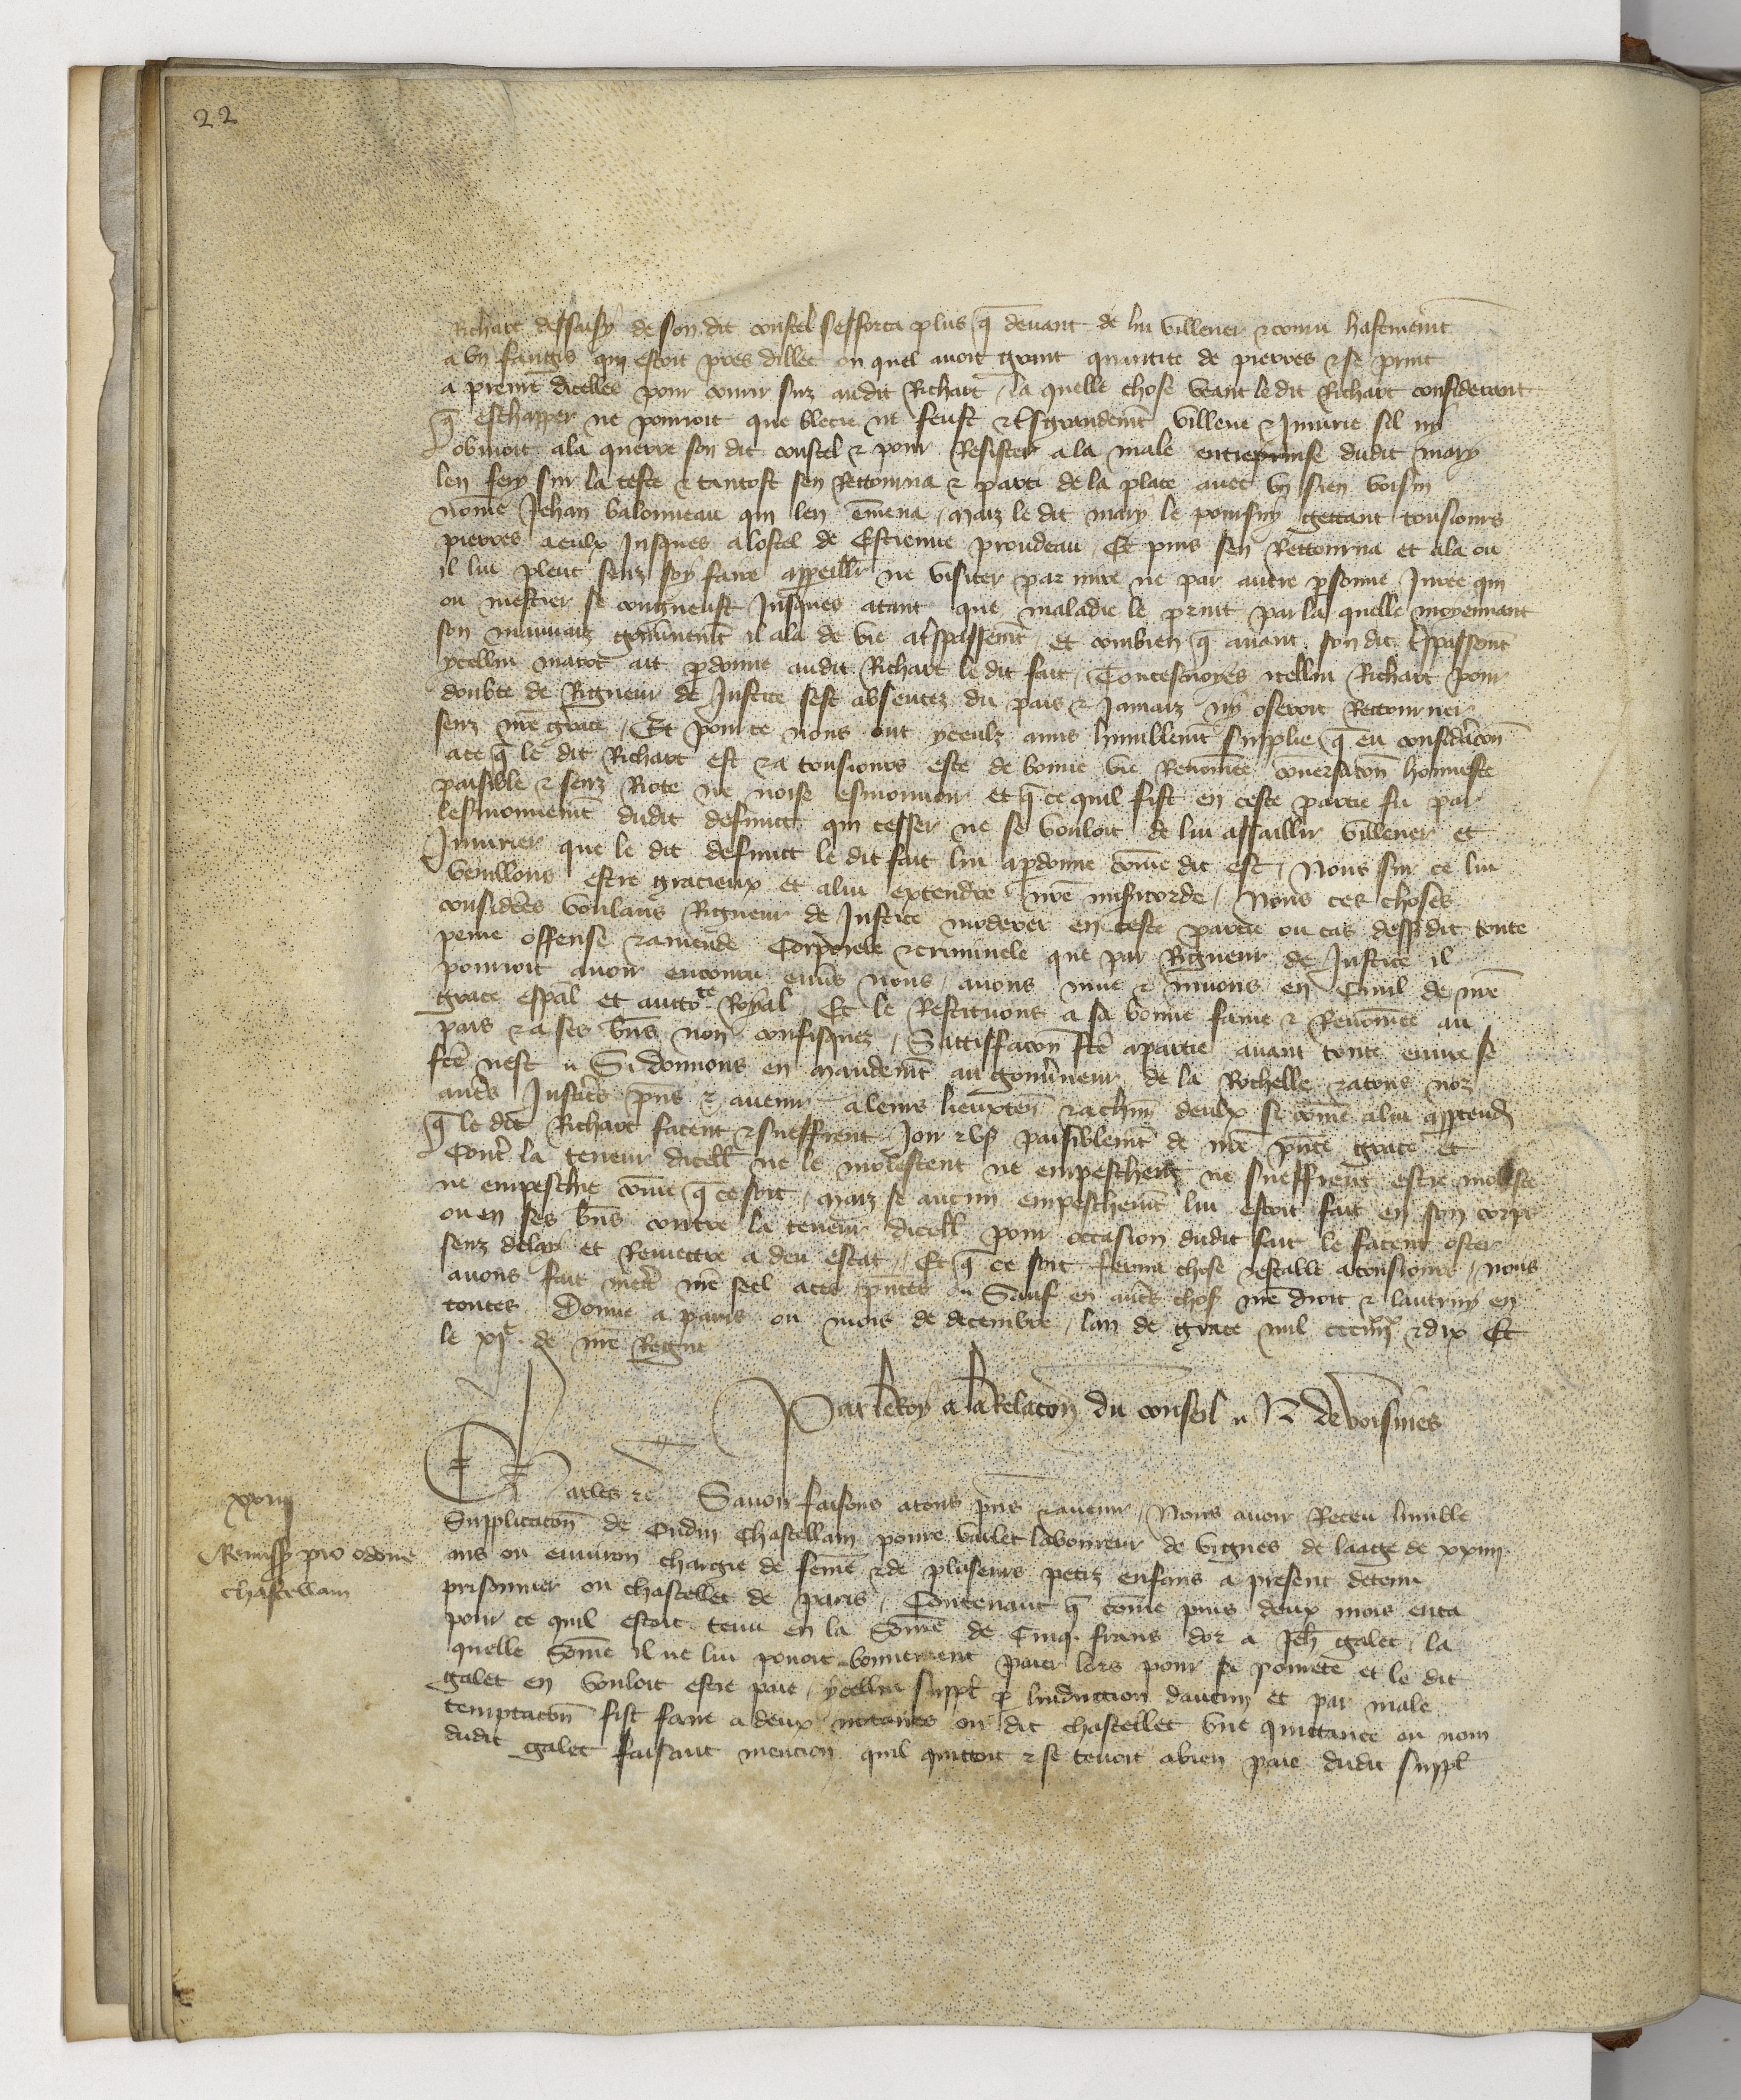 22
Richart dessaisy de son dit coustel sefforca plus q̃ devant de lui villener & couru hastivemẽt
a un fangis qui estoit pres dillec ou quel avoit grant quantite de pierres & se print
a prenrẽ dicelles pour courir suz audit Richart / la quelle chose veant le dit Richart considerant
q̃ eschapper ne pouvoit que blecie ne feust & tresgrandemẽt villene & Iniurie sil ny
obvioit ala querre son dit coustel & pour Resister a la male entreprinse dudit mary
len fery sur la teste & tantost sen Rettourna & parti de la place avec un sien voisin
nõme Jehan Valonneau qui len ẽmena / maiz le dit mary le poursuy gettant tousiours
pierres aeulx Jusques a lostel de Estienne proudeau / Et puis sen Rettourna et ala ou
il lui pleut senz soy faire appeillr̃ ne visiter par mire ne par autre p̃sonne Juree qui
ou mestier se congneust Jusques atant que maladie le print par la quelle moyennant
son mauvaiz gouvernemẽt il ala de vie a trespassemẽt / et combien q̃ avant son dit trespassemẽt
ycellui marot ait p̃donne audit Richart le dit fait / Toutesvoyes icellui Richart pour
doubte de Rigueur de Justice sest absentez du pais & Jamaiz ny oseroit Rettourner
senz nr̃e grace / Et pource nous ont yceulz amis humblemẽt supplie q̃ en considẽracon
ace q̃ le dit Richart est & a tousiours este de bonne vie Renõmee cõversacoñ honneste
paisible & senz Riote ne noise esmouvoir et q̃ ce quil fist en ceste partie fu par
lesmouvemẽt dudit defunct qui cesser ne se vouloit de lui assaillir villener et
Iniurier que le dit defunct le dit fait lui a p̃donne cõme dit est / Nous sur ce lui
vueillons estre gracieux et alui extendre nr̃e miscorde / Nous ces choses
considẽrees voulans Rigueur de Justice moderer en ceste partie ou cas dessusdit toute
peine offense & amende Corporele & criminele que par Rigueur de Justice il
pourroit avoir encouru envers nous / avons mue & muons en Civil de nr̃e
grace esp̃al et auctoᵗᵉ Royal Et le Restituons a sa bonne fame & Renõmee au
pais & a ses biẽs non confisquez / Sattisfacon fcẽ apartie avant toute euvre se
fcẽ nest // Si donnons en mandemẽt au gouvẽrneur de la Rochelle & atous noz
autr̃s Justicr̃s p̃ns & avenir aleurs lieuxten̄ & achũn deulx si cõme alui appartendr̃
q̃ le dit Richart facent & sueffrent Joir & user paisiblemẽt de nr̃e p̃nte grace et
Contr̃ la teneur dicell̃ ne le molestent ne empeschent ne sueffrent estre moleste
ne empeschie cõme q̃ ce soit / maiz se aucun empeschemẽt lui estoit fait en son corps
ou en ses biẽs contre la teneur dicell̃ pour occasion dudit fait le facent oster
senz delay et Remettre a deu estat / Et q̃ ce soit ferme chose & estable atousiours / nous
avons fait mettr̃ nr̃e seel aces p̃ntes // Sauf en autr̃s choses nr̃e droit & lautruy en
toutes Donne a paris ou mois de decembre / lan de grace mil ccciiijˣˣ & dix Et
le xjᵉ de nr̃e Regne
Par le Roy a la Relacoñ du conseil // N de voisines
xxiiij
Remissio pro odone
chastellain
Charles &c Savoir faisons atous p̃ns & avenir / Nous avoir Receu lumble
Supplicacoñ de Oudin Chastellain povre varlet laboureur de vignes de laage de xxiiij
ans ou environ chargie de fẽme & de pluseurs petiz enfans a present detenu
prisonnier ou chastellet de paris / Contenant q̃ cõme puis deux mois enca
pour ce quil estoit tenu en la Sõme de Cinq frans dor a Jeh̃ galet / la
quelle Sõme il ne lui povoit bonnement paier lors pour sa povrete et le dit
galet en vouloit estre paie / ycellui suppl̃ p̱ linduction daucuns et par male
temptacoñ fist faire a deux notaires ou dit chastellet une quittance ou nom
dudit galet faisant mencion quil quittoit & se tenoit abien paie dudit suppl̃